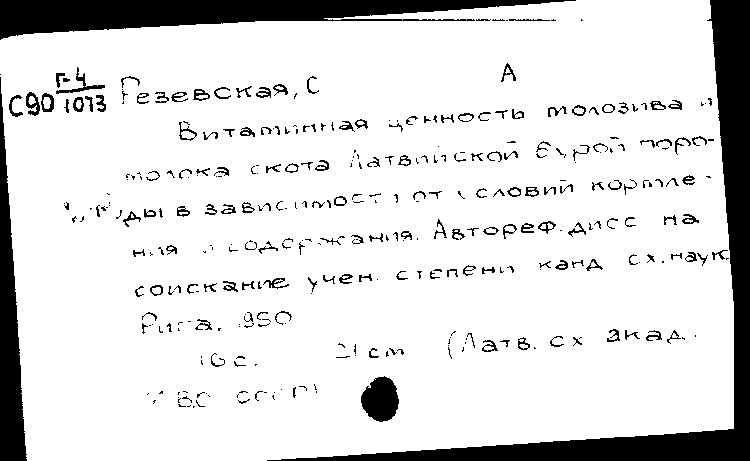 С90 Г-4/1073 Резевская, С А
Витаминная ценность молозива и
молока скота Латвийской бурой поро-
ды в зависимости от условий кормле-
ния и содержания. Автореф. дисс на
соискание учен. степени канд сх. наук
Рига, 1950
16 с. 21 cm (Латв. сх акад.
СССР)